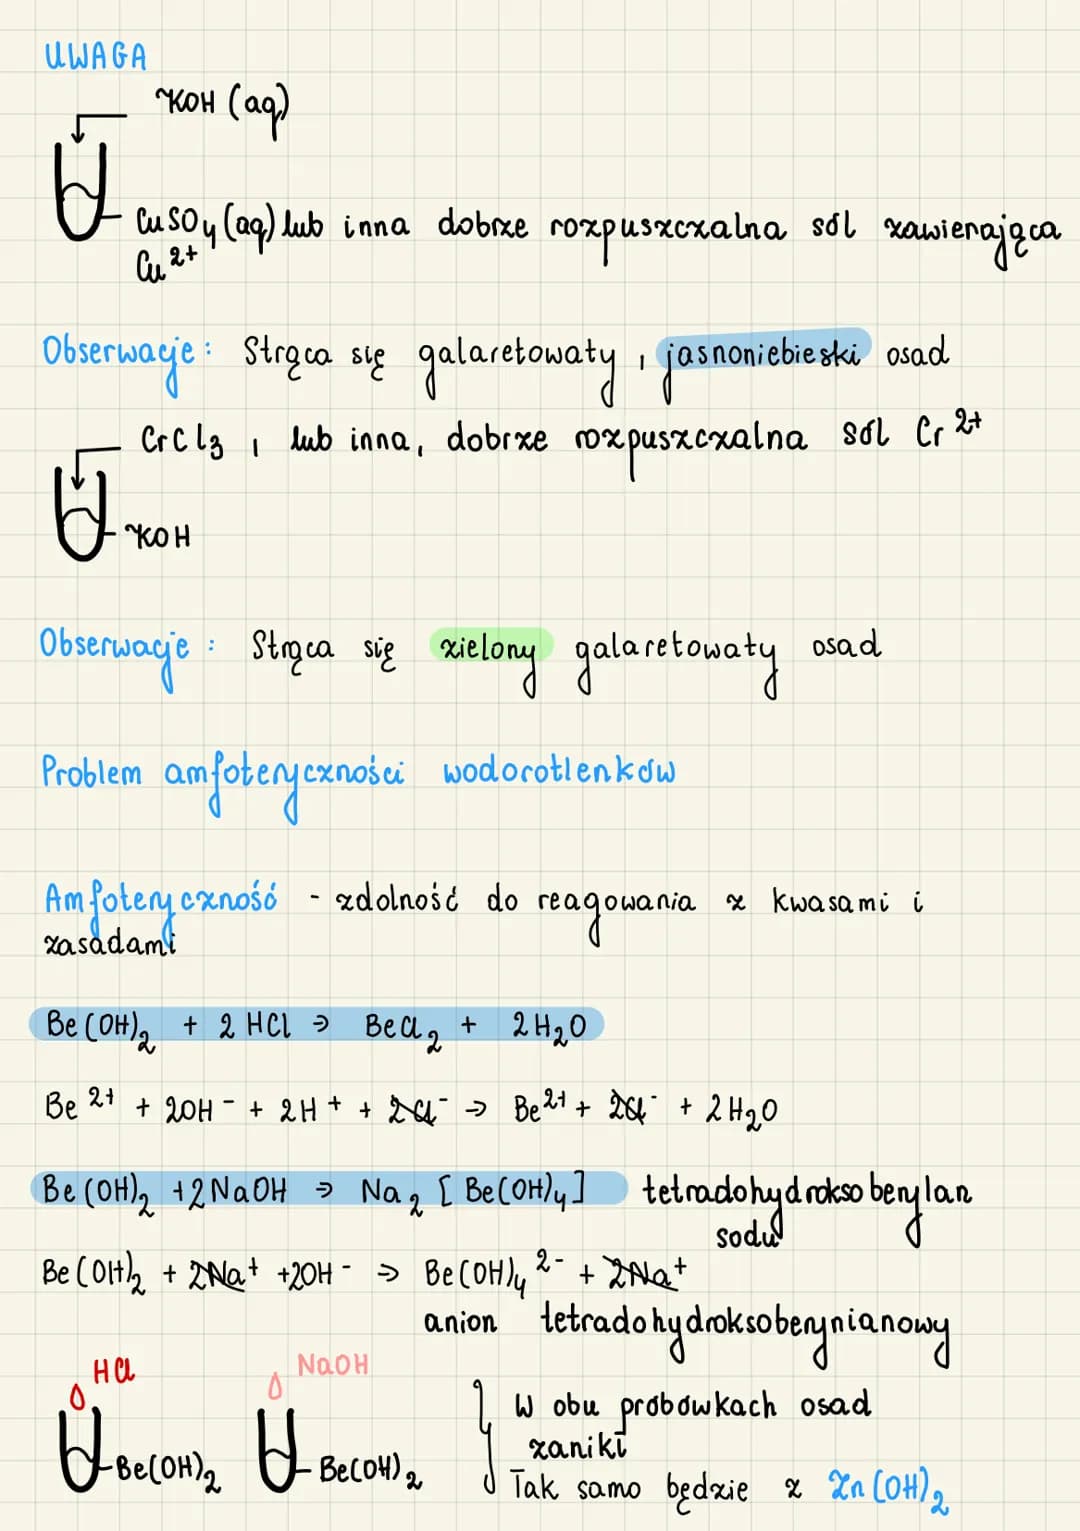 UWAGA
KOH (aq)
CuSO4 (aq) lub inna dobrze rozpuszczalna sól zawierająca
Cu 2+
Obserwacje: Strąca się galaretowaty, jasnoniebieski osad
CrCl3, lub inna, dobrze rozpuszczalna sól Cr 2+
KOH
Obserwacje: Strąca się zielony galaretowaty osad
Problem amfoteryczności wodorotlenków
Amfoteryczność - zdolność do reagowania z kwasami i
zasadami
Be(OH)2 + 2 HCl → BeCl2 + 2H2O
Be 2+ + 2OH - + 2H + + 2Cl - → Be2+ + 2Cl - + 2H2O
Be(OH)2 + 2NaOH → Na2 [Be(OH)4] tetradohydroksoberylan
sodu
Be(OH)2 + 2Na+ + 2OH - → Be(OH)4 2- + 2Na+
anion tetradohydroksoberynianowy
HCl NaOH
W obu probówkach osad
zanikł
Be(OH)2 Be(OH)2
Tak samo będzie z Zn(OH)2